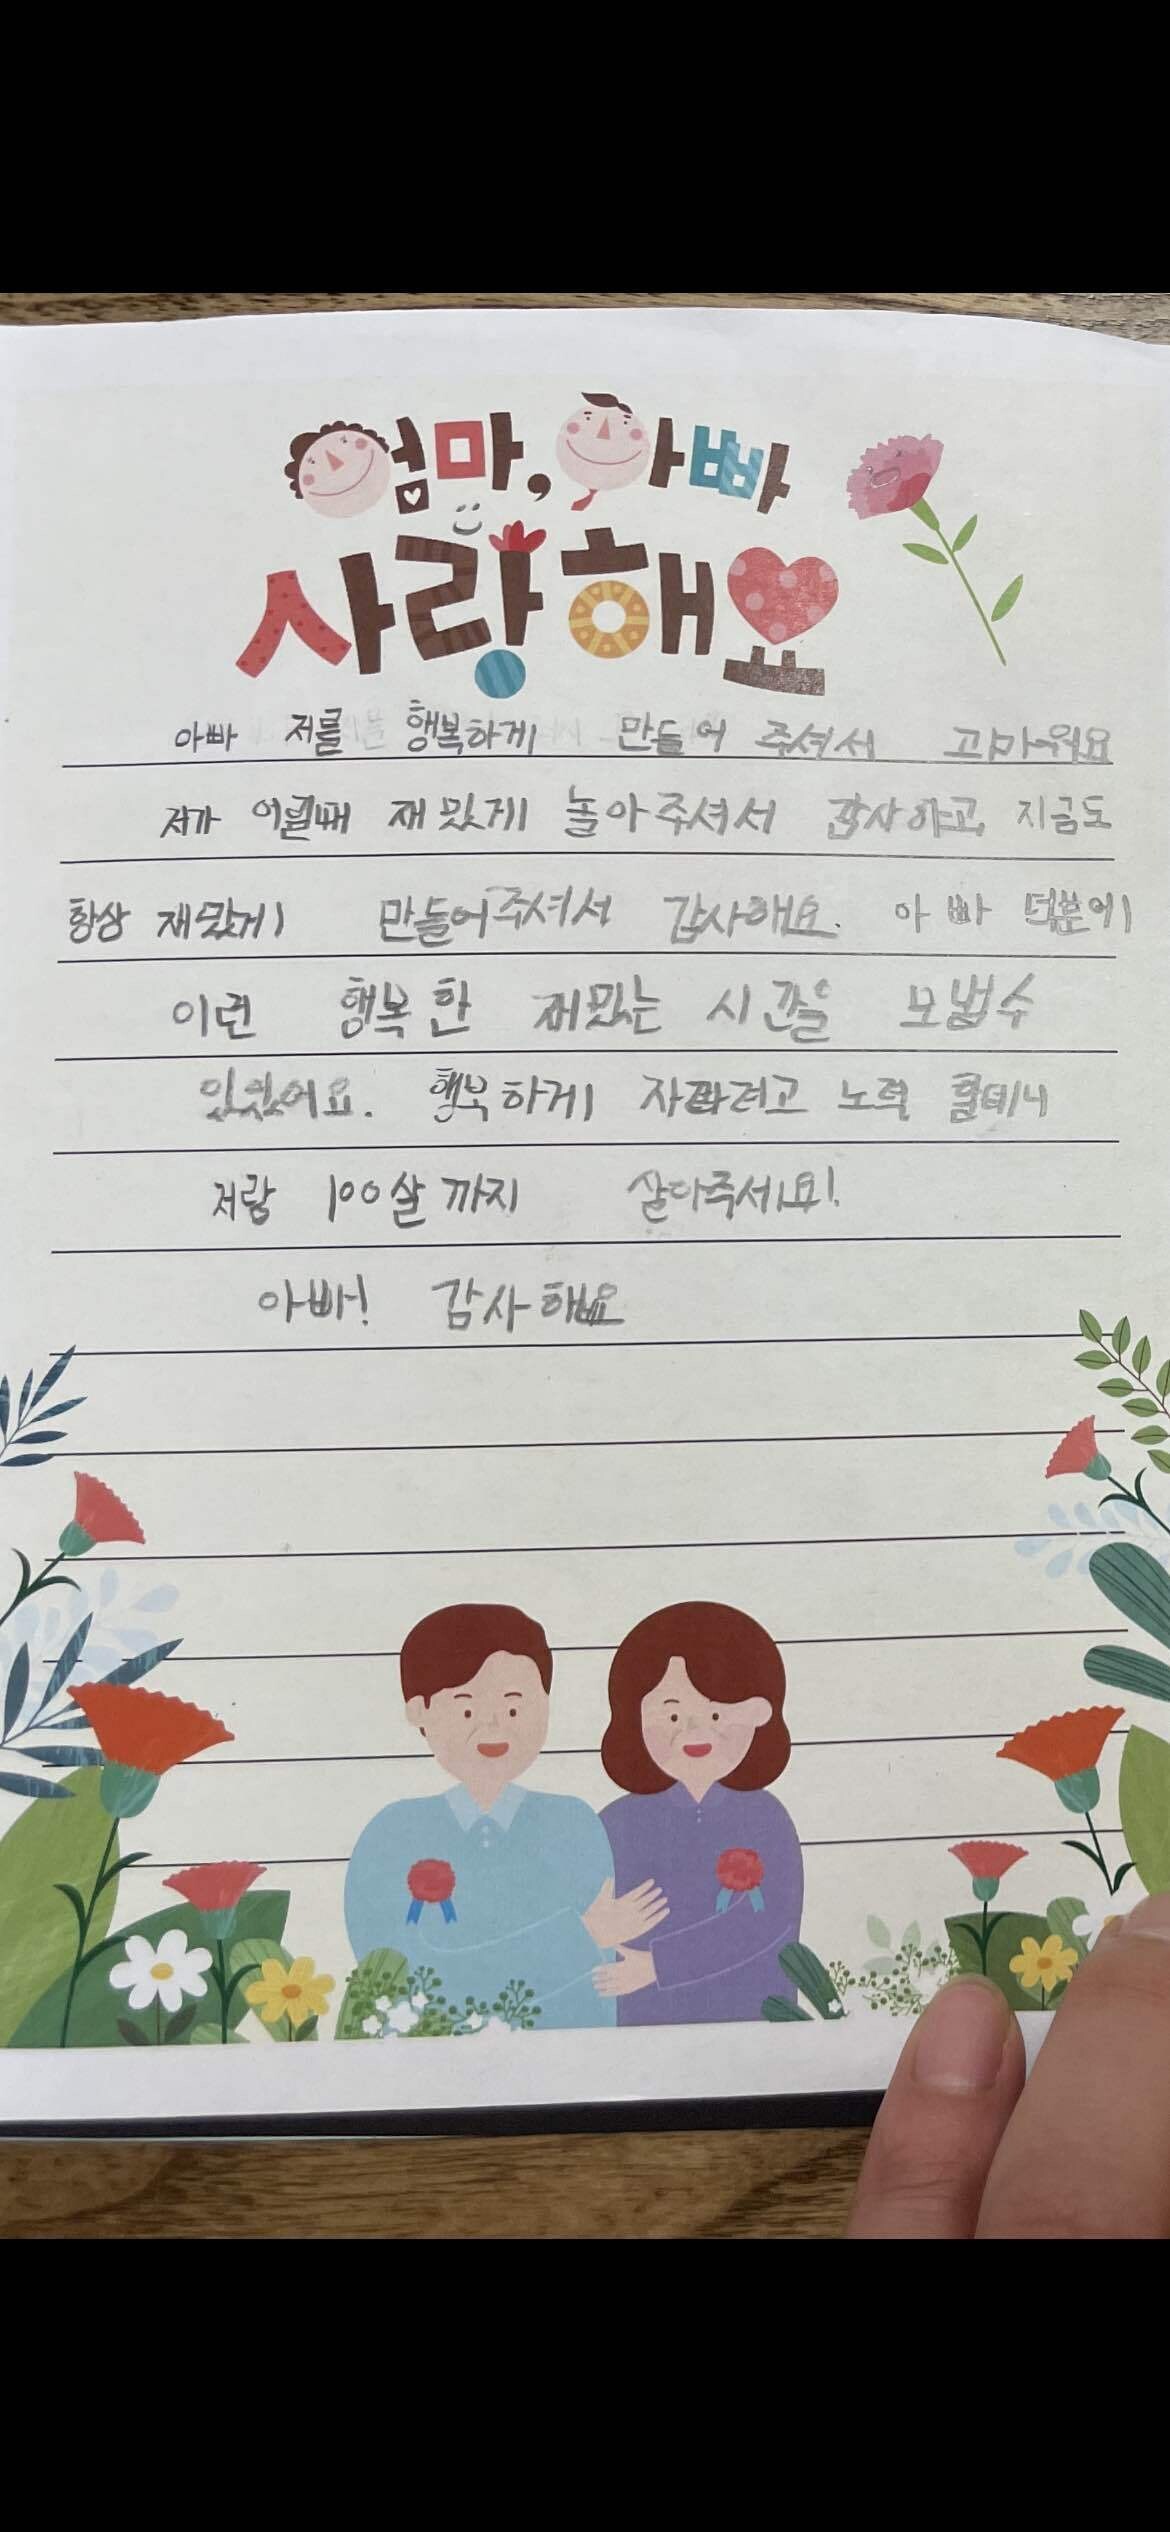 엄마, 아빠
사랑해요
아빠 저를 행복하게 만들어 주셔서 고마워요
저가 어릴때 재밌게 놀아주셔서 감사하고, 지금도
항상 재밌게 만들어주셔서 감사해요. 아빠 덕분에
이런 행복한 재밌는 시간을 보낼수
있었어요. 행복하게 자라려고 노력 할테니
저랑 100살까지 살아주세요!
아빠! 감사해요